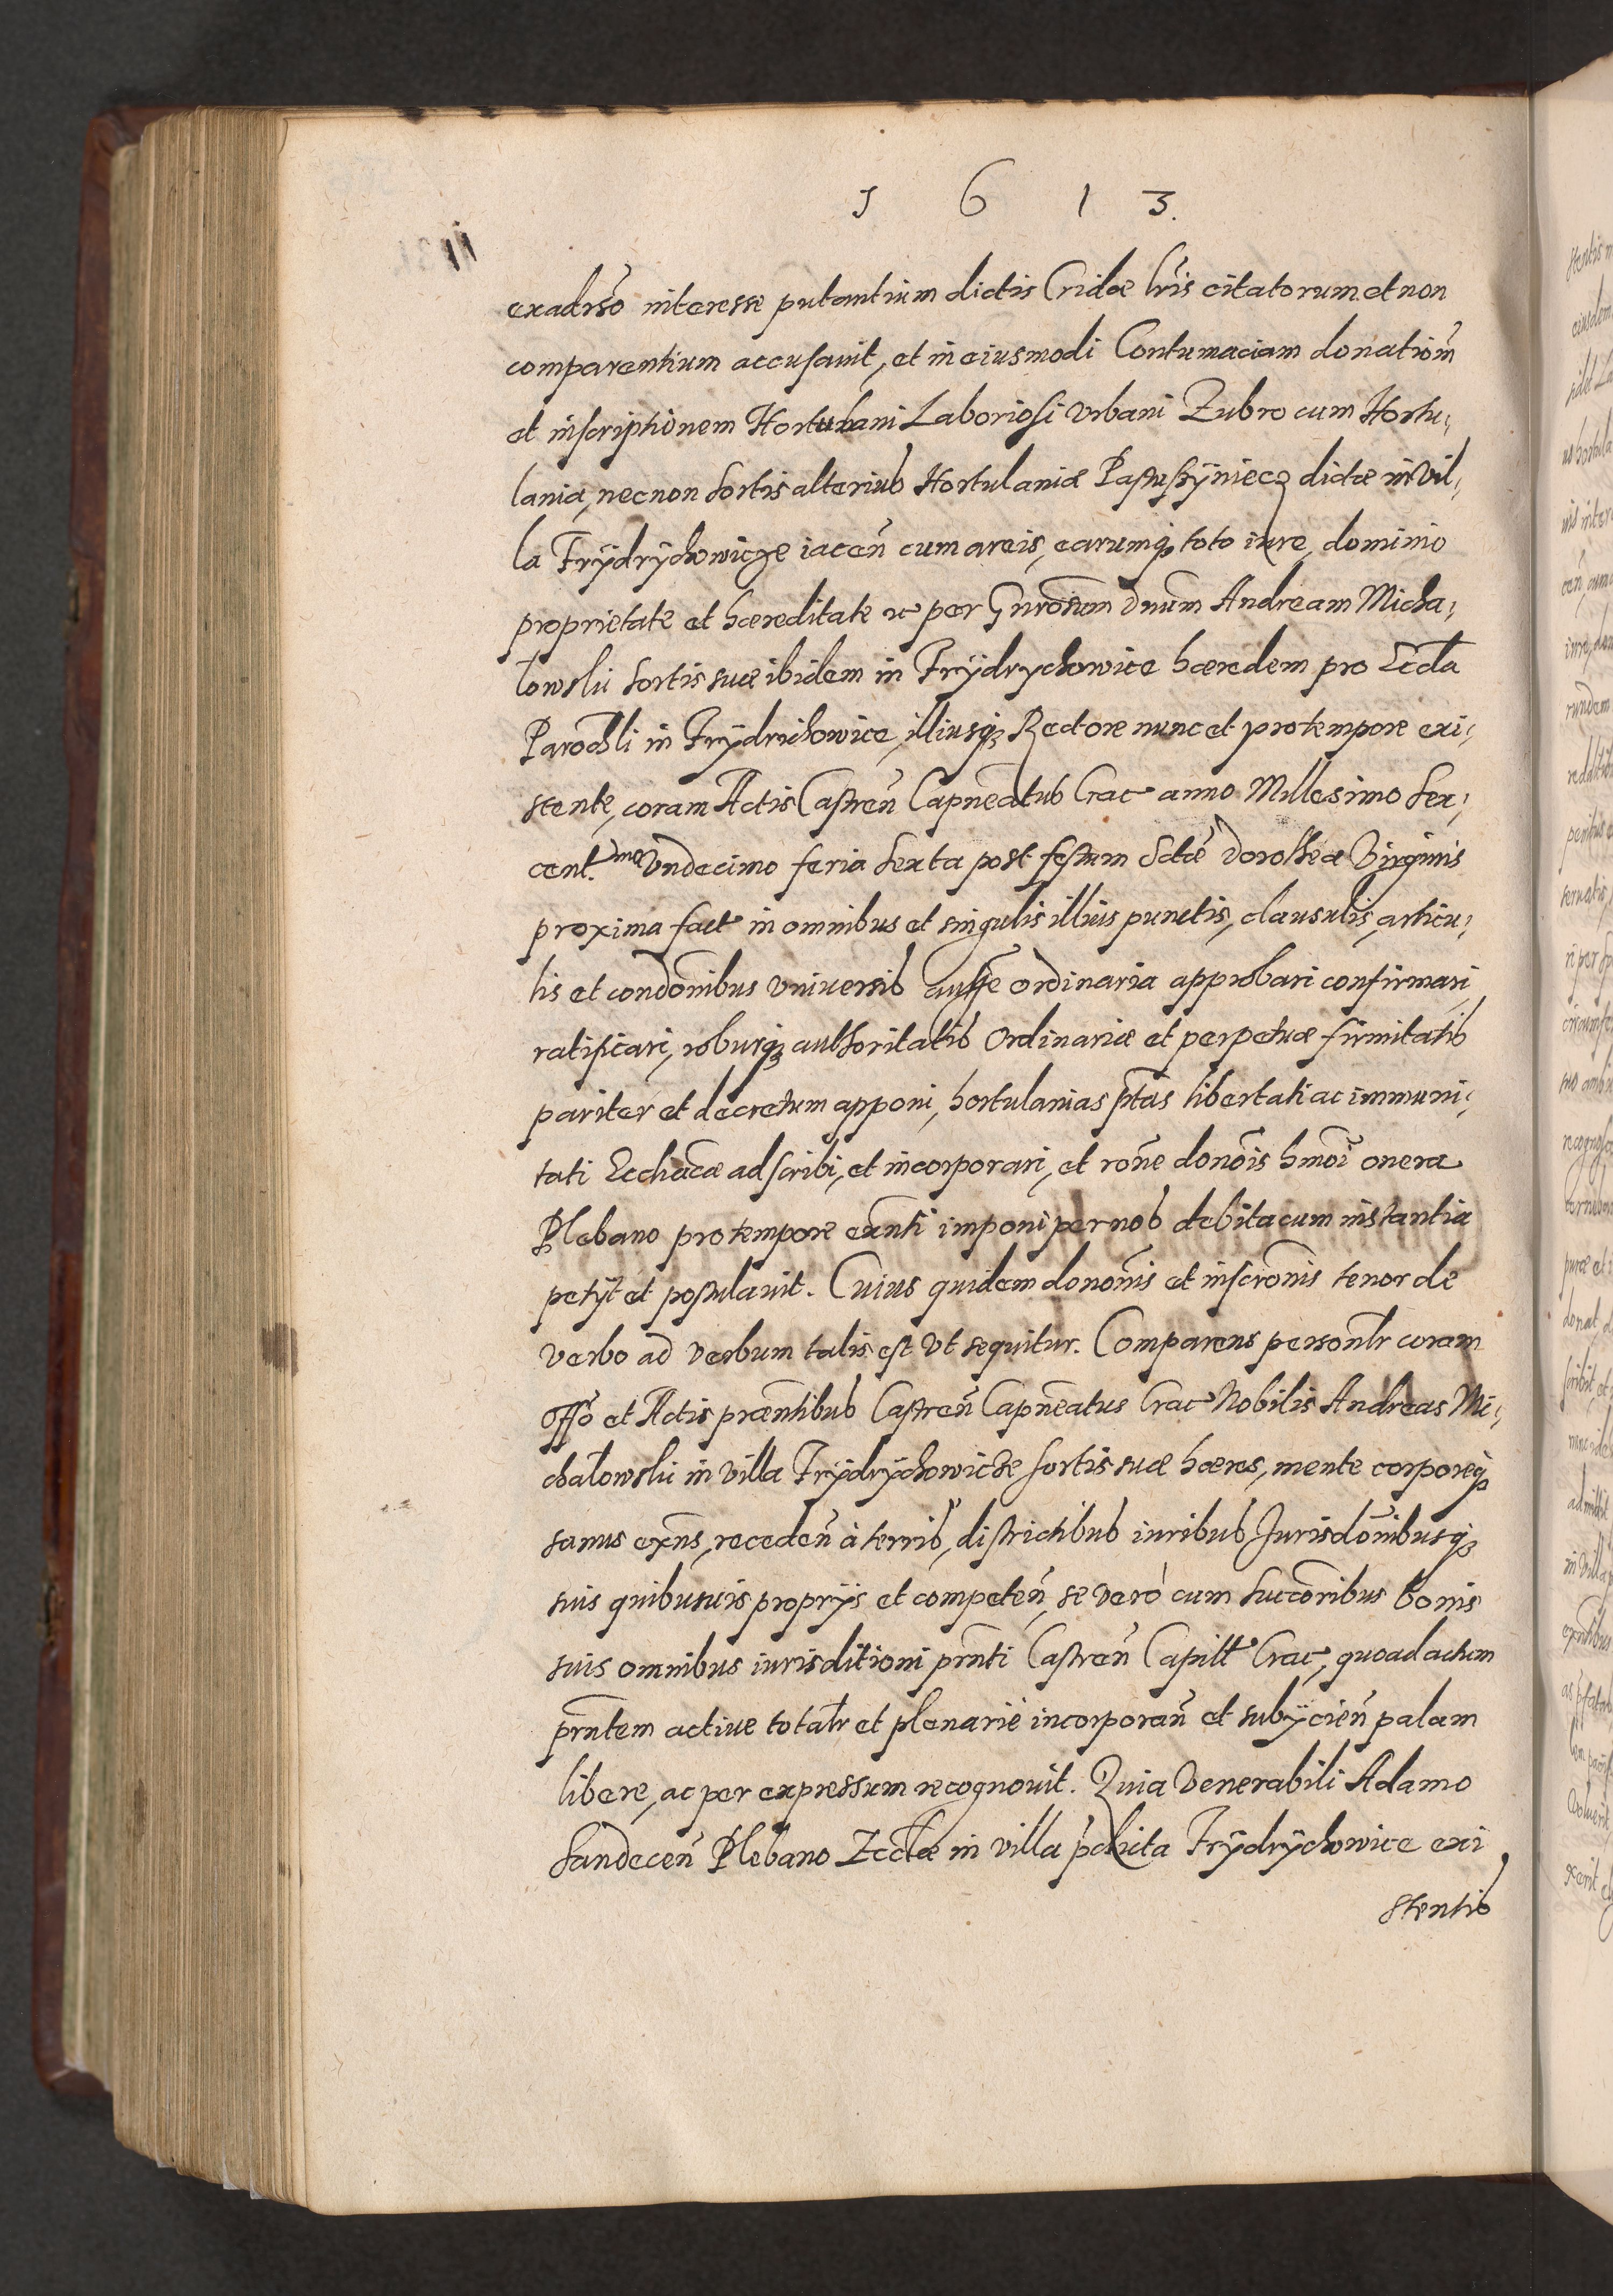 1 6 1 3.
ex adrso interesse putantium dictis Cridae lris citatorum et non
comparentium accusauit, et in eiusmodi Contumaciam donatiom
et inscriptionem Hortulani Laboriosi Vrbani Zubro cum Hortu,
lania, necnon sortis alterius Hortulaniae Pastuszÿniecz dictae in Vil,
la Frÿdrÿchowicze iacen cum areis, earumq toto iure, dominio
proprietate et haereditate ac per Gnrosum Dnum Andream Micha,
lowski sortis suae ibidem in Frÿdrychowice haeredem pro Eccla
Parochli in Frÿdrichowice, illiusq Rectore nunc et pro tempore exi,
stente, coram Actis Castren Capneatus Crac anno Millesimo Sex,
cent.mo Vndecimo feria sexta post festum Sctae Dorotheae Virginis
proxima fact in omnibus et singulis illius punctis, clausulis, articu,
lis et condonibus vniuersis authe ordinaria approbari confirmari
ratificari, roburq authoritatis Ordinariae et perpetuae firmitatis
pariter et decretum apponi, hortulanias ptas libertati ac immuni,
tati Ecclicae adscribi, et incorporari, et rone dononis hmoi onera
Plebano pro tempore exnti imponi per nos debita cum instantia
petÿt et postulauit. Cuius quidem dononis et inscronis tenor de
verbo ad verbum talis est vt sequitur. Comparens personlr coram
Offo et Actis praentibus Castren Capneatus Crac Nobilis Andreas Mi,
chalowski in villa Frÿdrÿchowicze sortis suae haeres, mente corporeq
sanus exns, receden à terris, districtibus iuribus Jurisdonibusq
suis quibusuis proprijs et competen, se verò cum succoribus bonis
suis omnibus iurisditioni prnti Castren Capitt Crac, quoad actum
prntem actiue totalr et plenariè incorporan et subÿcien palam
libere, ac per expressum recognouit. Quia Venerabili Adamo
Sandecen Plebano Eccliae in villa pdicta Frÿdrÿchowice exi
stentis